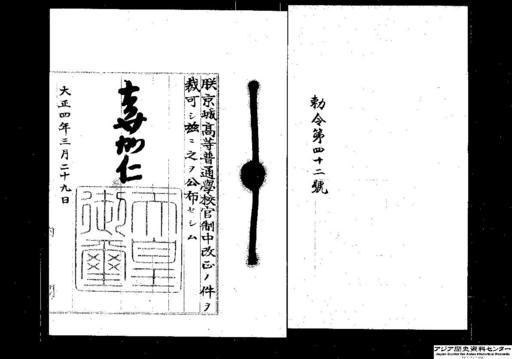 勅令第四十二號
朕京城高等普通學校官制中改正ノ件ヲ
裁可シ茲ニ之ヲ公布セシム
嘉仁
天皇
御璽
大正四年三月二十九日
アジア歴史資料センター
Japan Center for Asian Historical Records